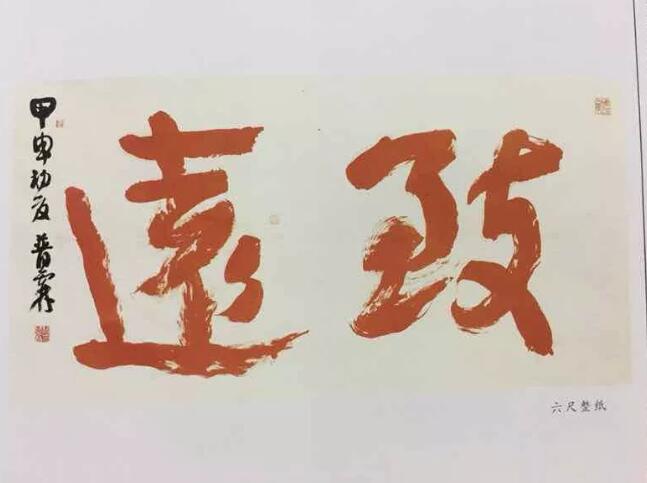 致遠
甲申初夏 普霖
六尺整纸